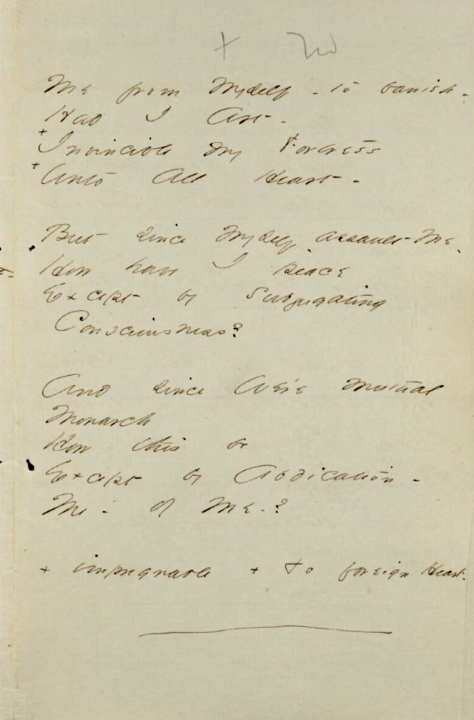 Me from Myself - to banish -
Had I Art -
+ Invincible my Fortress
+ Unto All Heart -
But since Myself - assault Me -
How have I peace
Except by subjugating
Consciousness?
And since We're mutual
Monarch
How this be
Except by Abdication -
Me - of Me - ?
+ impregnable + To foreign Heart -